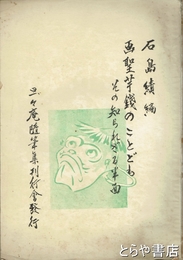 石島績編
画聖芋銭のことども
その知られざる半面
呉々庵随筆集刊行會發行
とらや書店